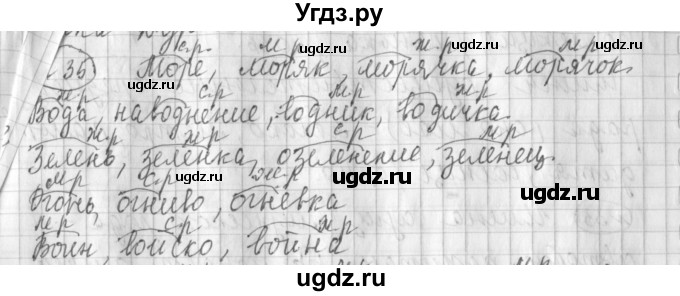 Угдз.ру
с.р. м.р ж.р м.р
35 Море, моряк, морячка, морячок.
м.р с.р м.р ж.р
Вода, наводнение, водник, водичка
ж.р ж.р с.р м.р
Зелень, зеленка, озеленение, зеленец.
м.р с.р ж.р
Огонь, огниво, огневка
м.р с.р м.р
Воин, войско, война
ugdz.ru ugdz.ru ugdz.ru
ugdz.ru
ugdz.ru ugdz.ru
ugdz.ru
ugdz.ru
ugdz.ru ugdz.ru
ugdz.ru